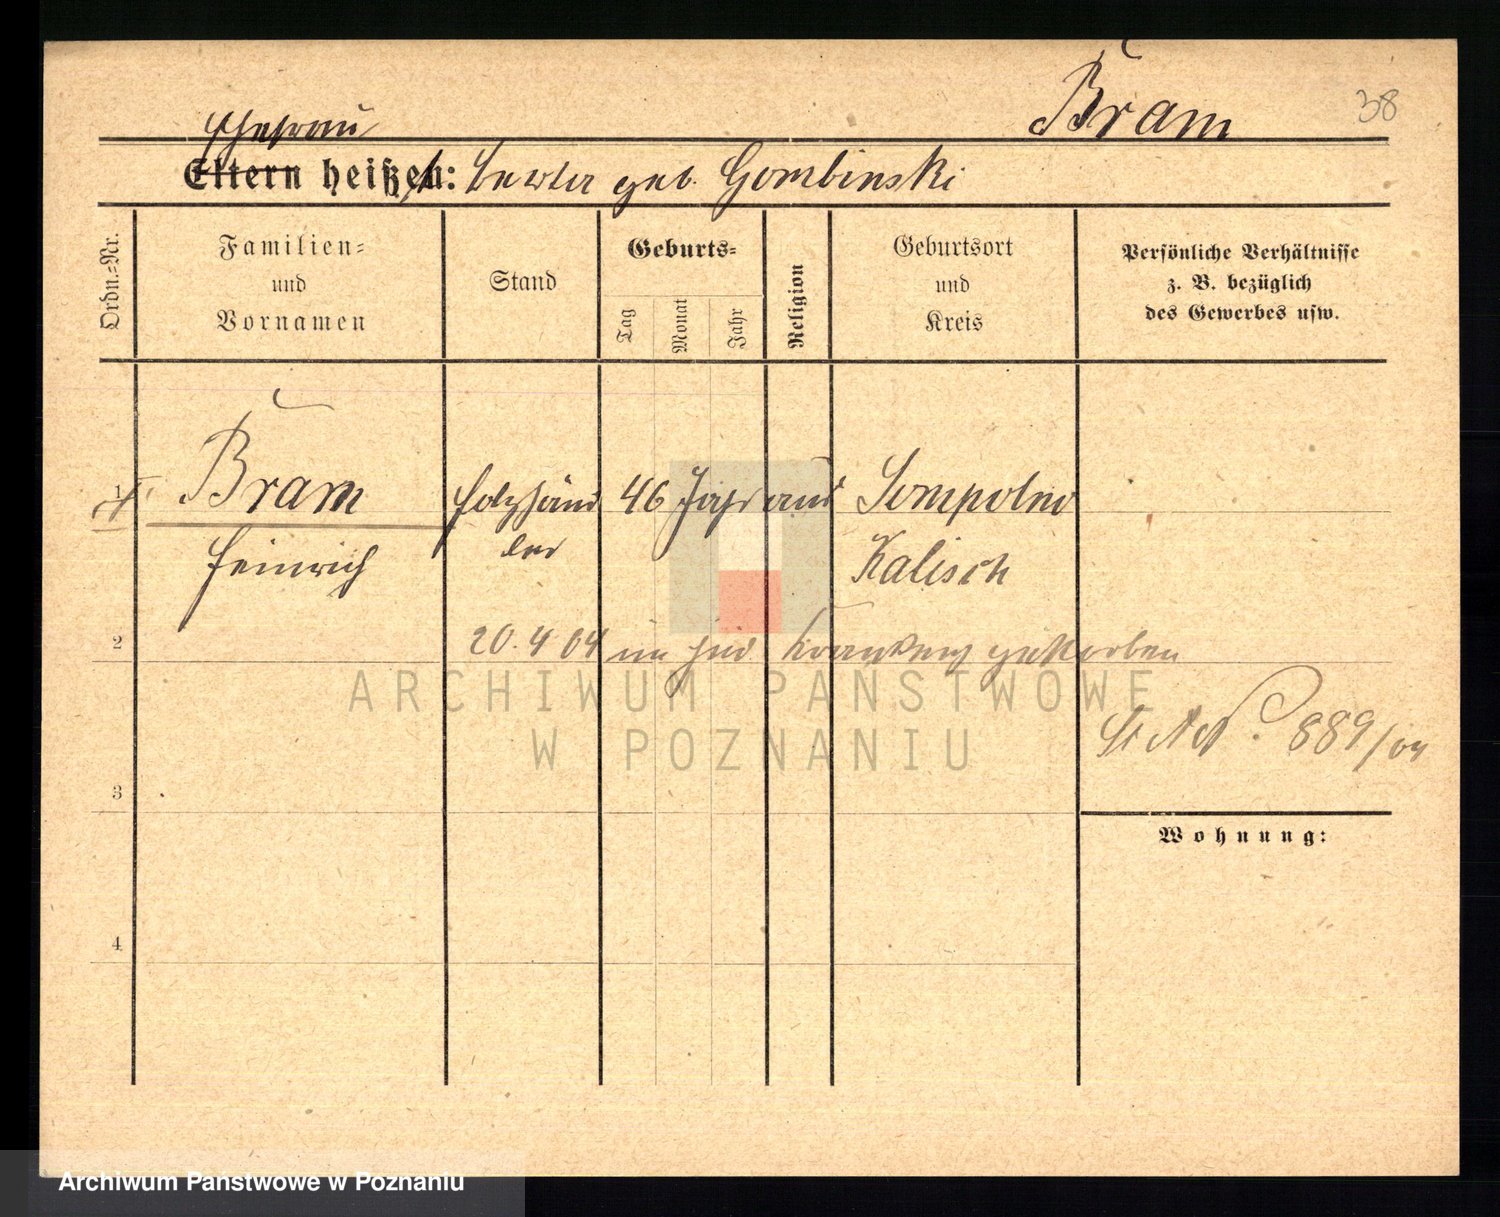 Bram
38
Ehefrau
Eltern heißen: geb. Gombinski
Ordn.=Nr.
Familien=
und
Vornamen
Stand
Geburts=
Tag
Monat
Jahr
Religion
Geburtsort
und
Kreis
Persönliche Verhältnisse
z. B. bezüglich
des Gewerbes usw.
1 Bram Holzhänd 46 Jahr aus Sompolno
Heinrich ler Kalisch
2 20.4.04 im jüd. Krankenh gestorben
St A N° 889/04
3
Wohnung:
4
ARCHIWUM PAŃSTWOWE
W POZNANIU
Archiwum Państwowe w Poznaniu